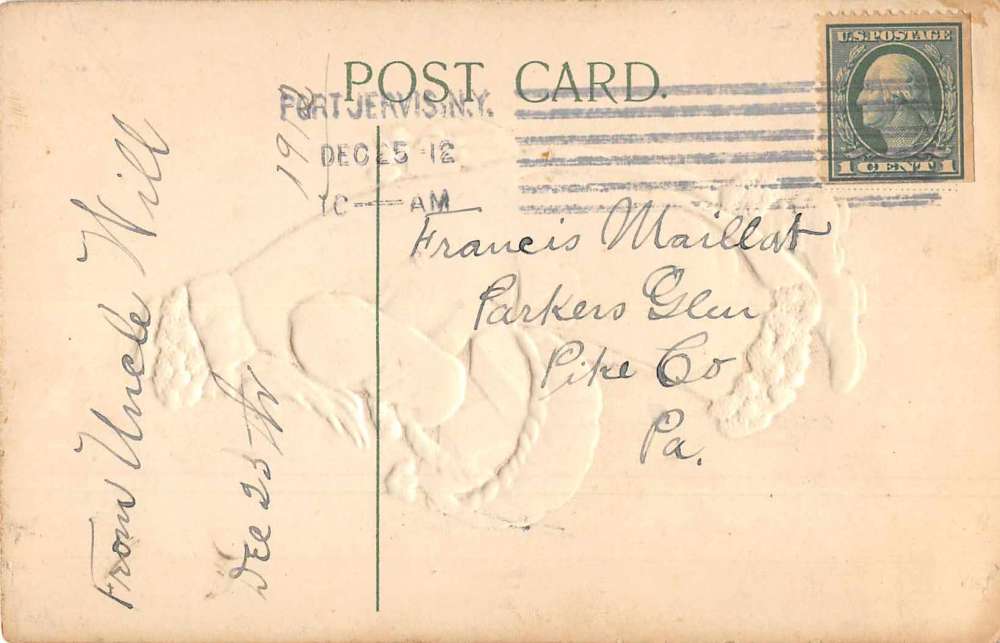 POST CARD.
PORT JERVIS, N.Y.
DEC 25 -12
10 — AM
U.S. POSTAGE
1 CENT 1
Francis Maillat
Parkers Glen
Pike Co
Pa.
From Uncle Will
Dec 25th
1912